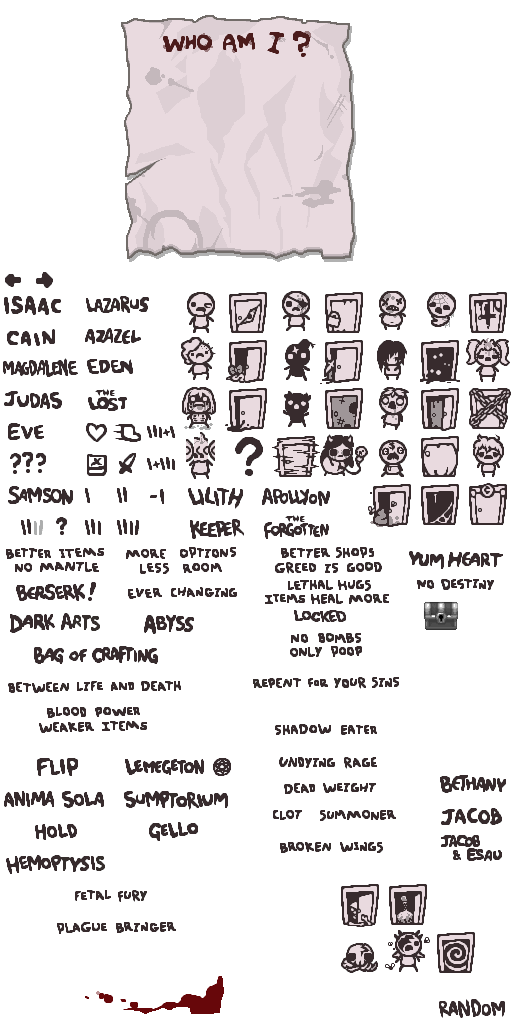 WHO AM I ?
ISAAC
LAZARUS
CAIN
AZAZEL
MAGDALENE
EDEN
JUDAS
THE
LOST
EVE
III+I
???
I+III
?
SAMSON
I
II
-I
LILITH
APOLLYON
IIII
?
III
IIII
KEEPER
THE
FORGOTTEN
BETTER ITEMS
NO MANTLE
MORE OPTIONS
LESS ROOM
BETTER SHOPS
GREED IS GOOD
YUM HEART
BERSERK!
EVER CHANGING
LETHAL HUGS
ITEMS HEAL MORE
NO DESTINY
DARK ARTS
ABYSS
LOCKED
NO BOMBS
ONLY POOP
BAG OF CRAFTING
BETWEEN LIFE AND DEATH
REPENT FOR YOUR SINS
BLOOD POWER
WEAKER ITEMS
SHADOW EATER
FLIP
LEMEGETON
UNDYING RAGE
DEAD WEIGHT
BETHANY
ANIMA SOLA
SUMPTORIUM
CLOT SUMMONER
JACOB
HOLD
GELLO
BROKEN WINGS
JACOB
& ESAU
HEMOPTYSIS
FETAL FURY
PLAGUE BRINGER
RANDOM